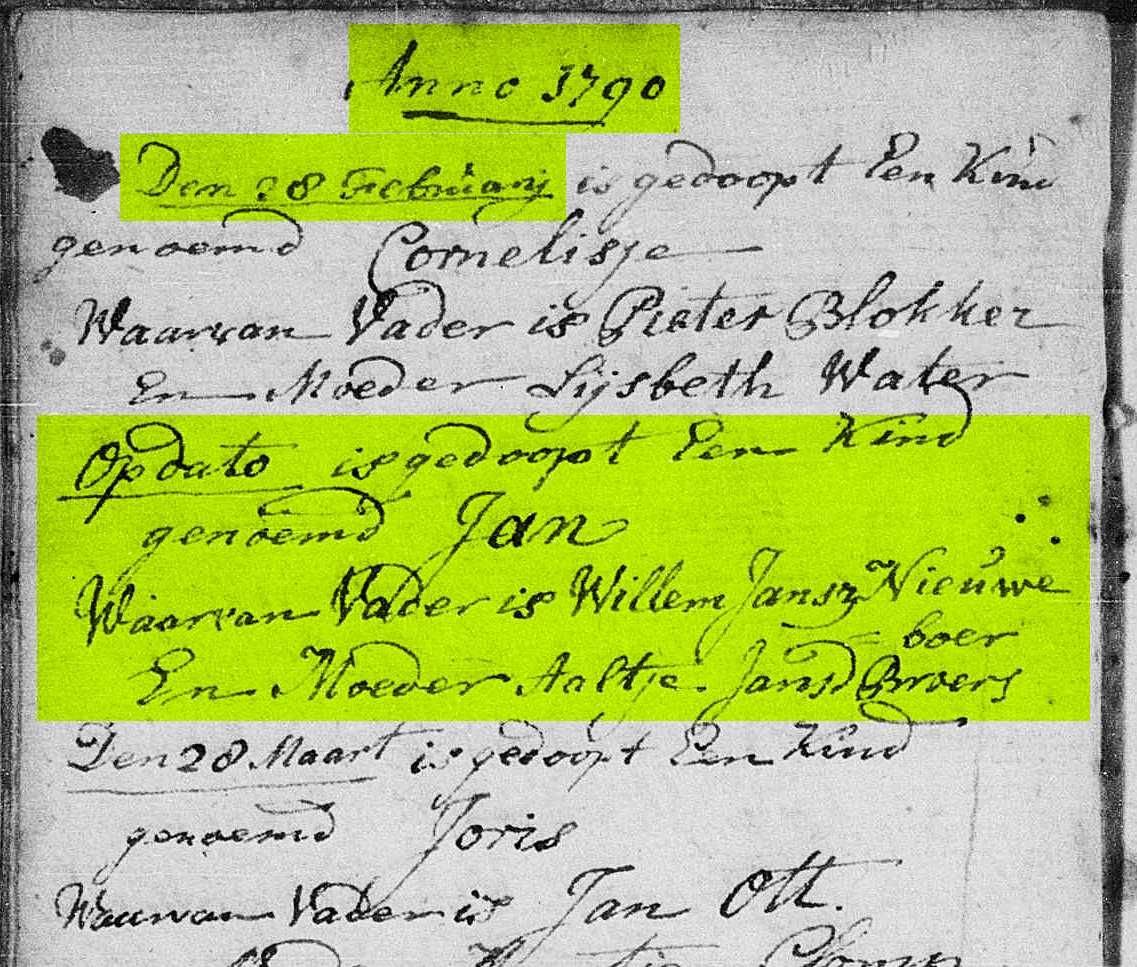 Anno 1790
Den 28 Februarij is gedoopt Een Kind
genoemd Cornelisje
Waarvan Vader is Pieter Blokker
En Moeder Lijsbeth Water
Op dato is gedoopt Een Kind
genoemd Jan
Waarvan Vader is Willem Jansz Nieuwe
= boer
En Moeder Aaltje Jansd Broers
Den 28 Maart is gedoopt Een Kind
genoemd Joris
Waarvan Vader is Jan Ott.